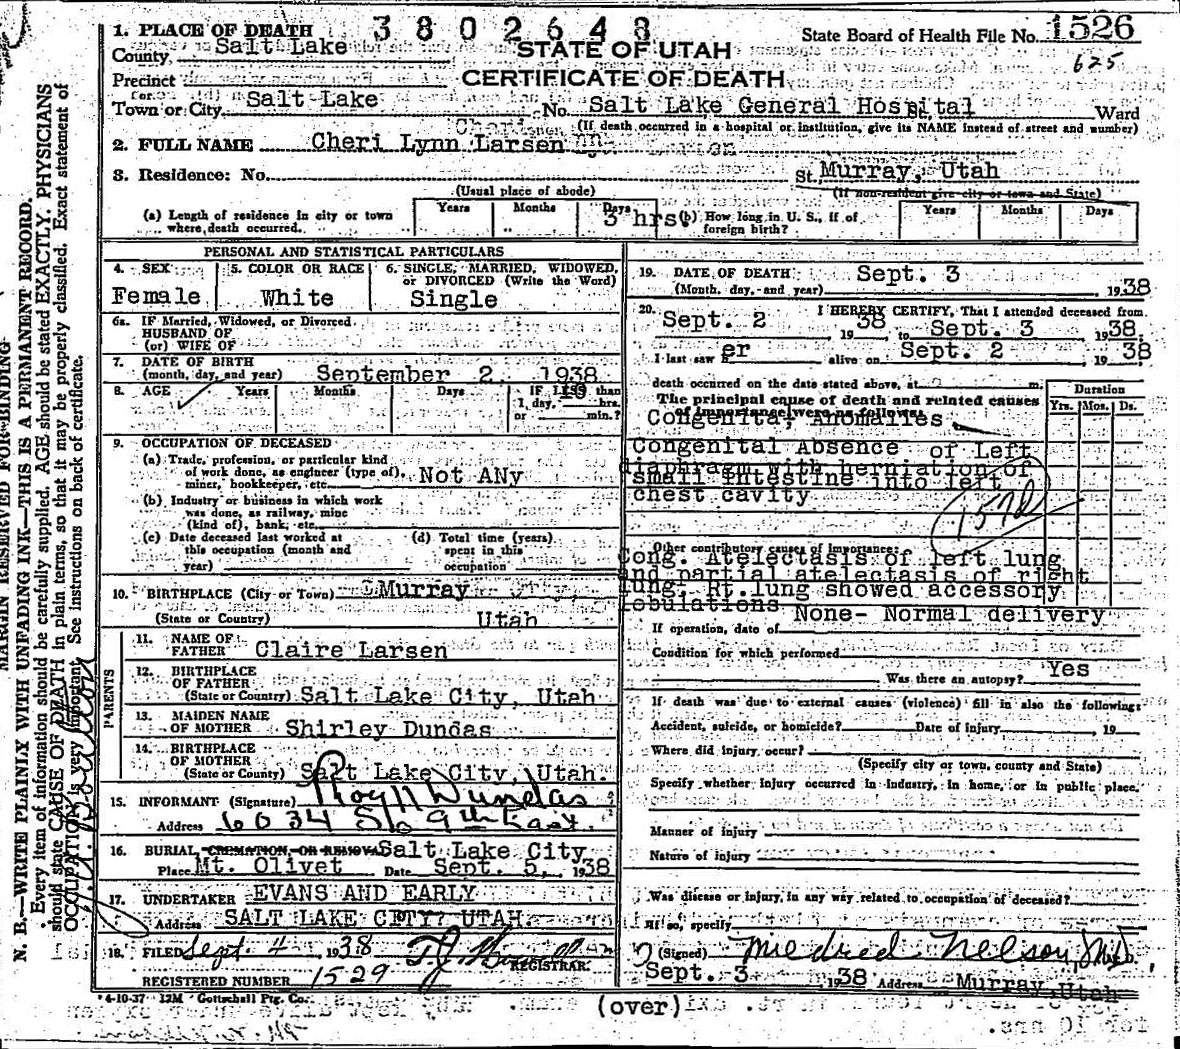 3802648
1. PLACE OF DEATH
State Board of Health File No. 1526
County, Salt Lake
STATE OF UTAH
625
Precinct
CERTIFICATE OF DEATH
or
Town or City Salt Lake No. Salt Lake General Hospital Ward
(If death occurred in a hospital or institution, give its NAME instead of street and number)
2. FULL NAME Cheri Lynn Larsen
3. Residence: No. St. Murray, Utah
(Usual place of abode) (If non-resident give city or town and State)
(a) Length of residence in city or town where death occurred. Years Months Days 3 hrs (b) How long in U. S., if of foreign birth? Years Months Days
PERSONAL AND STATISTICAL PARTICULARS
4. SEX Female
5. COLOR OR RACE White
6. SINGLE, MARRIED, WIDOWED, or DIVORCED (Write the Word) Single
6a. IF Married, Widowed, or Divorced
HUSBAND OF
(or) WIFE OF
7. DATE OF BIRTH
(month, day, and year) September 2, 1938
8. AGE Years Months Days IF LESS than
1 day, 10 hrs.
or min.?
9. OCCUPATION OF DECEASED
(a) Trade, profession, or particular kind
of work done, as engineer (type of),
miner, bookkeeper, etc. Not ANy
(b) Industry or business in which work
was done, as railway, mine
(kind of), bank, etc.
(c) Date deceased last worked at
this occupation (month and
year)
(d) Total time (years)
spent in this
occupation
10. BIRTHPLACE (City or Town) Murray
(State or Country) Utah
PARENTS
11. NAME OF
FATHER Claire Larsen
12. BIRTHPLACE
OF FATHER
(State or Country) Salt Lake City, Utah
13. MAIDEN NAME
OF MOTHER Shirley Dundas
14. BIRTHPLACE
OF MOTHER
(State or County) Salt Lake City, Utah.
15. INFORMANT (Signature) Roy N Dundas
Address 6034 So 9th East.
16. BURIAL, CREMATION, OR REMOVAL Salt Lake City
Place Mt. Olivet Date Sept. 5, 1938
17. UNDERTAKER EVANS AND EARLY
Address SALT LAKE CITY, UTAH.
18. FILED Sept 4 1938
REGISTRAR.
REGISTERED NUMBER 1529
19. DATE OF DEATH Sept. 3
(Month, day, and year) 1938
20. I HEREBY CERTIFY, That I attended deceased from
Sept. 2 1938 to Sept. 3 1938.
I last saw her alive on Sept. 2 1938
death occurred on the date stated above, at m.
The principal cause of death and related causes
of importance were as follows:
Duration
Yrs. Mos. Ds.
Congenital Anomalies
Congenital Absence of Left
diaphragm with herniation of
small intestine into left
chest cavity
157d
Other contributory causes of importance:
Cong. Atelectasis of left lung
and partial atelectasis of right
lung. Rt.lung showed accessory
lobulations None- Normal delivery
If operation, date of
Condition for which performed
Was there an autopsy? Yes
If death was due to external causes (violence) fill in also the following:
Accident, suicide, or homicide? Date of injury , 19
Where did injury occur?
(Specify city or town, county and State)
Specify whether injury occurred in industry, in home, or in public place.
Manner of injury
Nature of injury
Was disease or injury, in any way related to occupation of deceased?
If so, specify
(Signed) Mildred Nelson, M.D.,
Sept. 3 1938 Address Murray, Utah
4-10-37 12M Gottschall Ptg. Co.
(over)
MARGIN RESERVED FOR BINDING
N. B.—WRITE PLAINLY WITH UNFADING INK—THIS IS A PERMANENT RECORD.
Every item of information should be carefully supplied. AGE should be stated EXACTLY. PHYSICIANS
should state CAUSE OF DEATH in plain terms, so that it may be properly classified. Exact statement of
OCCUPATION is very important. See instructions on back of certificate.